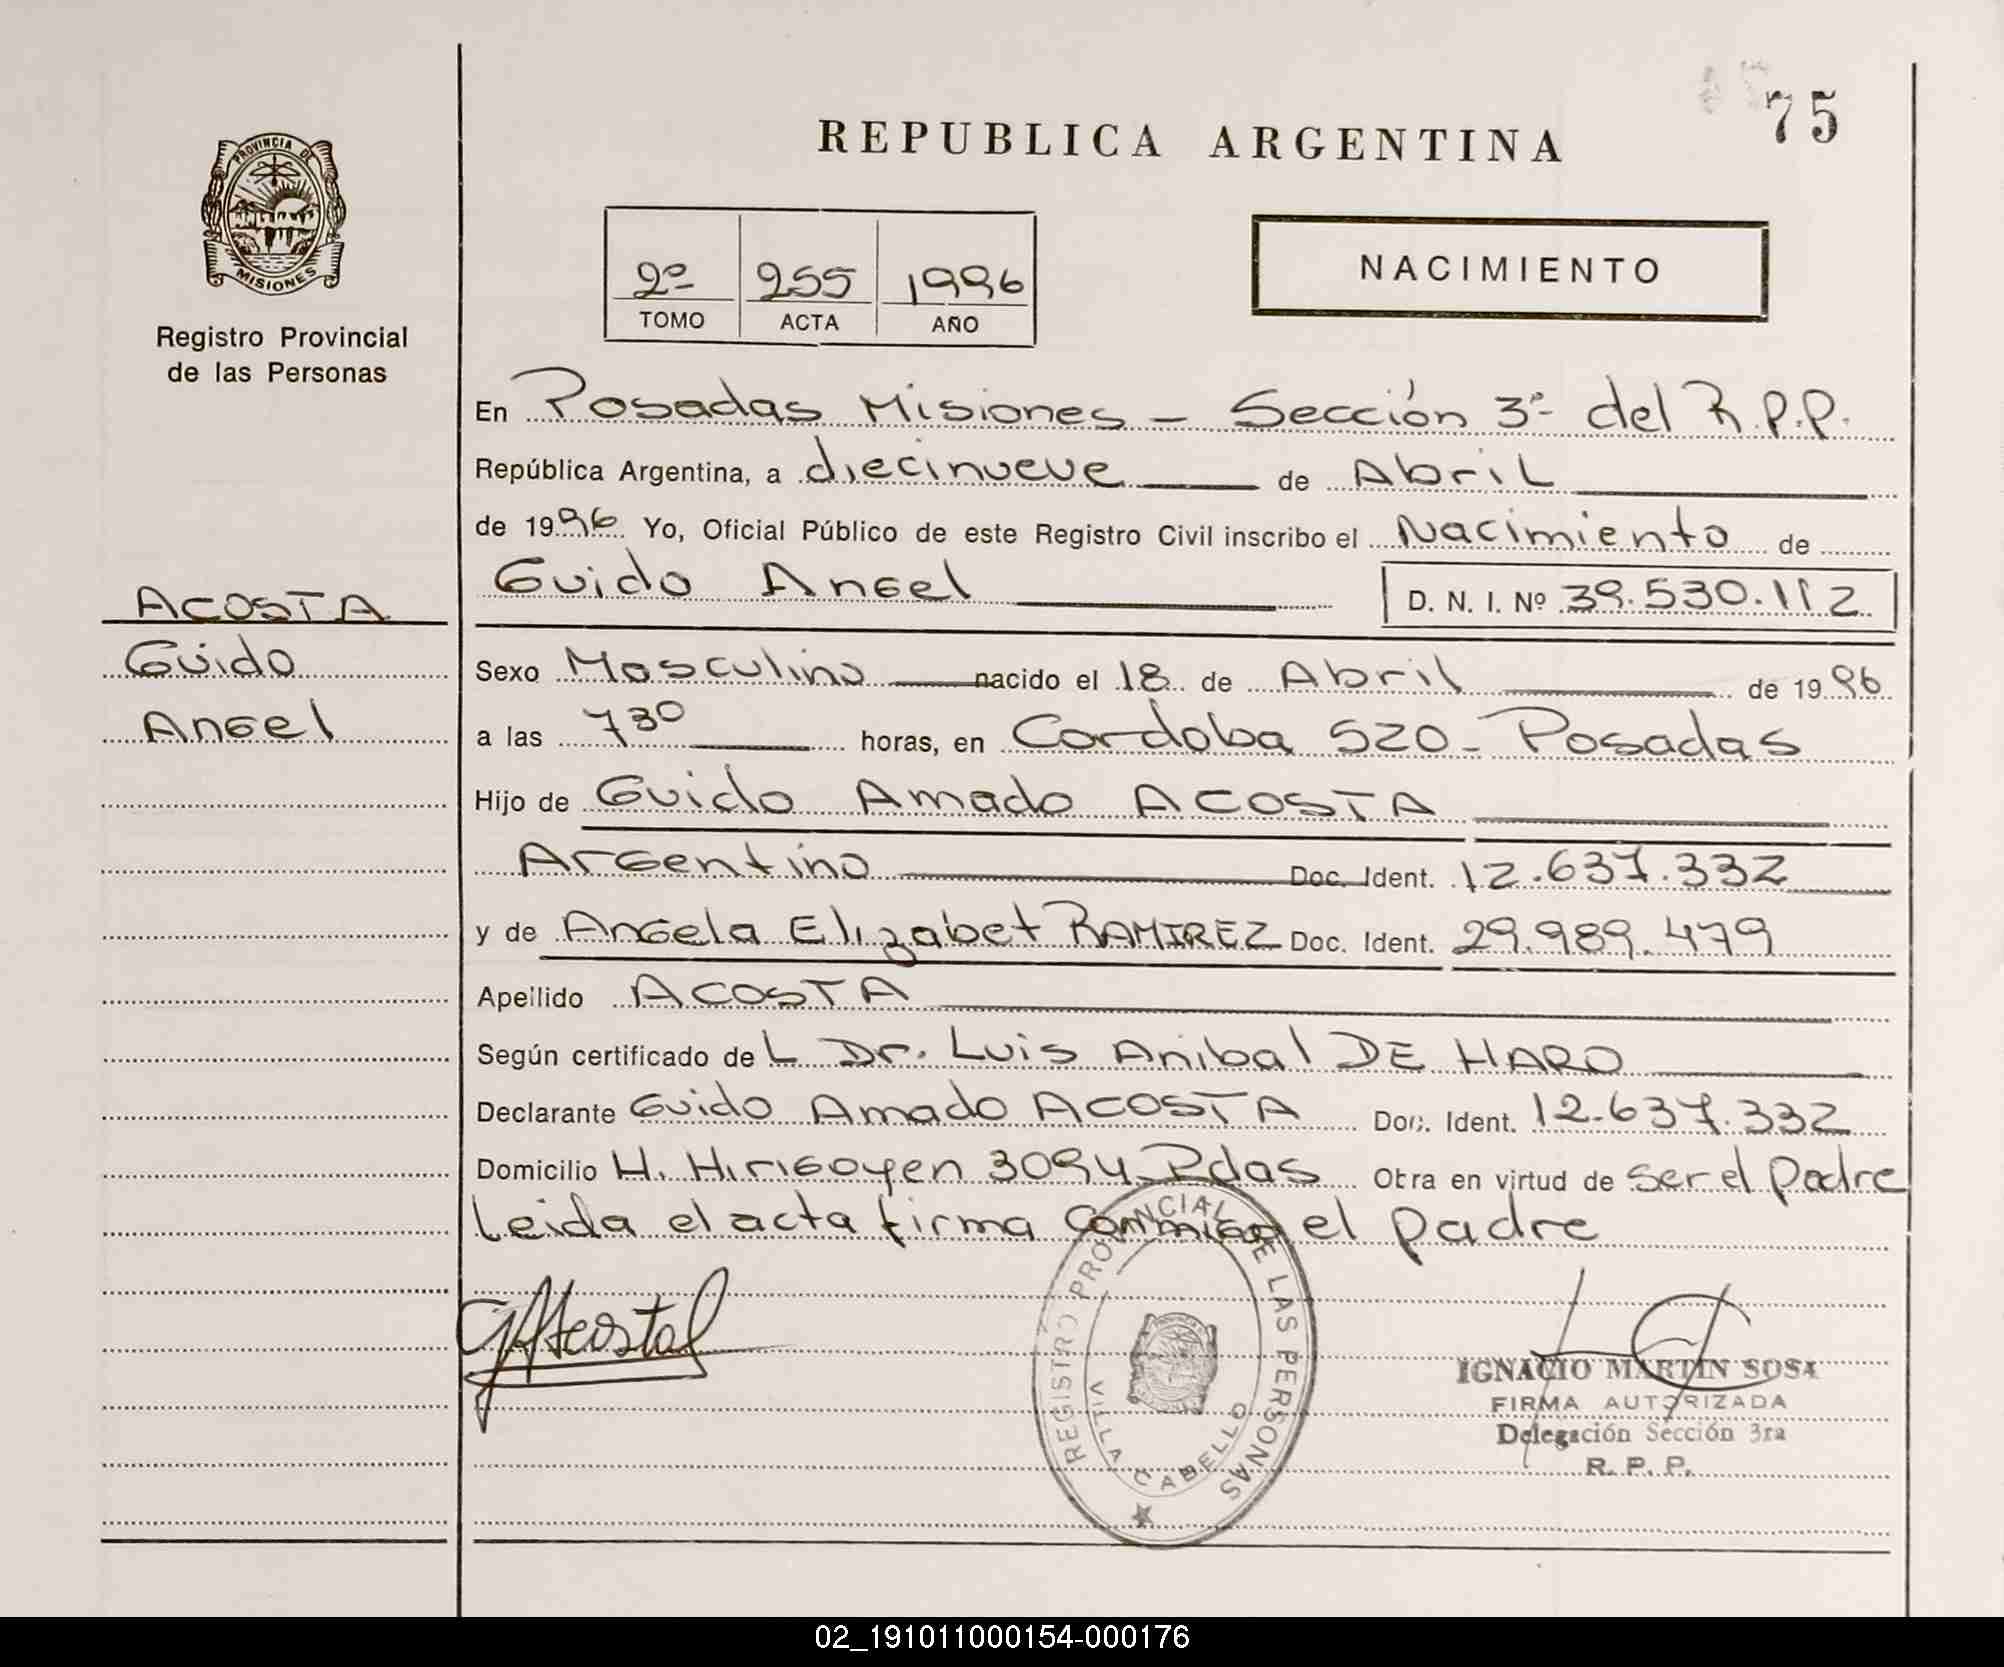 75
REPUBLICA ARGENTINA
PROVINCIA DE
MISIONES
Registro Provincial
de las Personas
2º 255 1996
TOMO ACTA AÑO
NACIMIENTO
En Posadas Misiones - Sección 3ª del R.P.P.
República Argentina, a diecinueve de Abril
de 1996 Yo, Oficial Público de este Registro Civil inscribo el Nacimiento de
Guido Angel D. N. I. Nº 39.530.112
ACOSTA
Guido
Angel
Sexo Masculino nacido el 18 de Abril de 1996
a las 7 30 horas, en Cordoba 520 - Posadas
Hijo de Guido Amado ACOSTA
Argentino Doc. Ident. 12.637.332
y de Angela Elizabet RAMIREZ Doc. Ident. 29.989.479
Apellido ACOSTA
Según certificado de L Dr. Luis Anibal DE HARO
Declarante Guido Amado ACOSTA Doc. Ident. 12.637.332
Domicilio H. Hirigoyen 3094 Pdas Obra en virtud de ser el padre
Leida el acta firma conmigo el padre
GAAcosta
REGISTRO PROVINCIAL DE LAS PERSONAS
VILLA CABELLO
IGNACIO MARTIN SOSA
FIRMA AUTORIZADA
Delegación Sección 3ra
R. P. P.
02_191011000154-000176